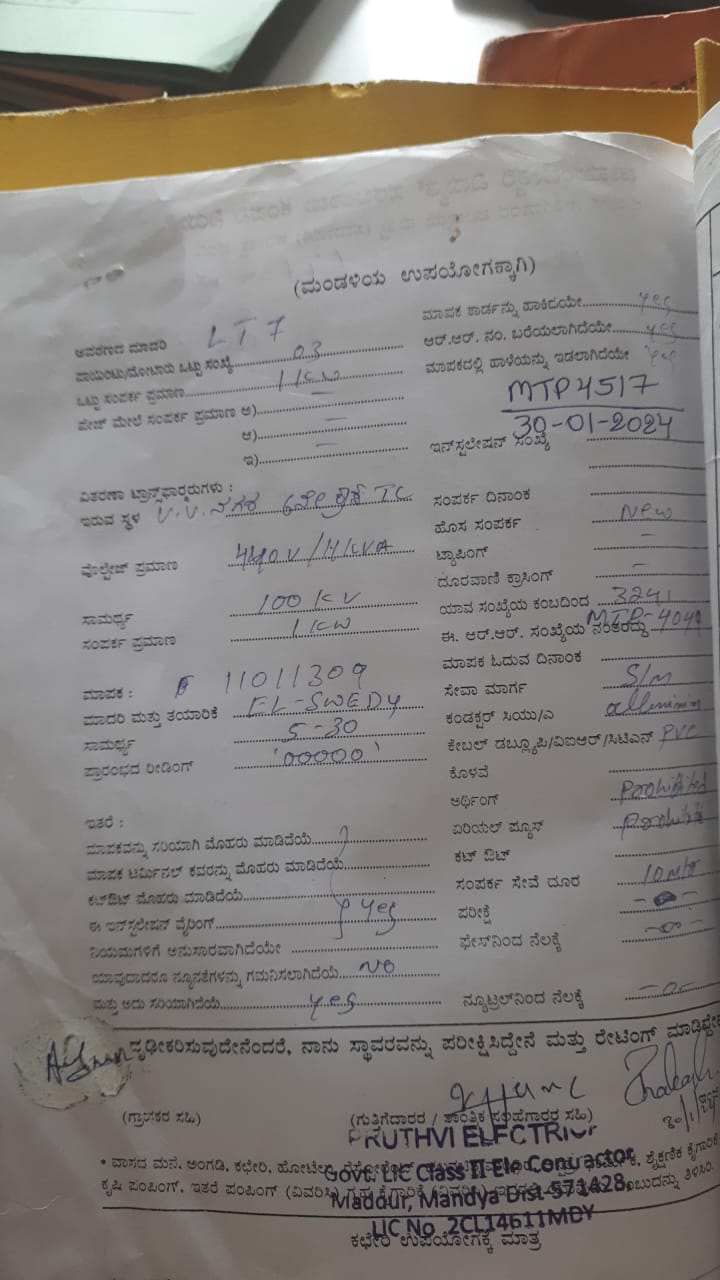 (ಮಂಡಳಿಯ ಉಪಯೋಗಕ್ಕಾಗಿ)
ಆವರಣದ ಮಾದರಿ LT7
ಪಾಯಿಂಟು/ಮೋಟಾರು ಒಟ್ಟು ಸಂಖ್ಯೆ 03
ಒಟ್ಟು ಸಂಪರ್ಕ ಪ್ರಮಾಣ 1KW
ಪೇಜ್ ಮೇಲೆ ಸಂಪರ್ಕ ಪ್ರಮಾಣ ಅ) —
ಆ) —
ಇ) —
ವಿತರಣಾ ಟ್ರಾನ್ಸ್‌ಫಾರ್ಮರುಗಳು :
ಇರುವ ಸ್ಥಳ V.V. ನಗರ TC
ವೊಲ್ಟೇಜ್ ಪ್ರಮಾಣ
ಸಾಮರ್ಥ್ಯ 100 KV
ಸಂಪರ್ಕ ಪ್ರಮಾಣ 1KW
ಮಾಪಕ : 11011309
ಮಾದರಿ ಮತ್ತು ತಯಾರಿಕೆ EL-SWEDY
ಸಾಮರ್ಥ್ಯ 5-30
ಪ್ರಾರಂಭದ ರೀಡಿಂಗ್ '00000'
ಇತರೆ :
ಮಾಪಕವನ್ನು ಸರಿಯಾಗಿ ಮೊಹರು ಮಾಡಿದೆಯೆ
ಮಾಪಕ ಟರ್ಮಿನಲ್ ಕವರನ್ನು ಮೊಹರು ಮಾಡಿದೆಯೆ
ಕಟ್‌ಔಟ್ ಮೊಹರು ಮಾಡಿದೆಯೆ
ಈ ಇನ್‌ಸ್ಟಲೇಷನ್ ವೈರಿಂಗ್ yes
ನಿಯಮಗಳಿಗೆ ಅನುಸಾರವಾಗಿದೆಯೇ
ಯಾವುದಾದರೂ ನ್ಯೂನತೆಗಳನ್ನು ಗಮನಿಸಲಾಗಿದೆಯೆ NO
ಮತ್ತು ಅದು ಸರಿಯಾಗಿದೆಯೆ yes
ಮಾಪಕ ಕಾರ್ಡನ್ನು ಹಾಕಿದೆಯೇ yes
ಆರ್.ಆರ್. ನಂ. ಬರೆಯಲಾಗಿದೆಯೇ yes
ಮಾಪಕದಲ್ಲಿ ಹಾಳೆಯನ್ನು ಇಡಲಾಗಿದೆಯೇ yes
MTP4517
30-01-2024
ಇನ್‌ಸ್ಟಲೇಷನ್ ಸಂಖ್ಯೆ
ಸಂಪರ್ಕ ದಿನಾಂಕ
ಹೊಸ ಸಂಪರ್ಕ New
ಟ್ಯಾಪಿಂಗ್ —
ದೂರವಾಣಿ ಕ್ರಾಸಿಂಗ್ —
ಯಾವ ಸಂಖ್ಯೆಯ ಕಂಬದಿಂದ 3241
ಈ. ಆರ್.ಆರ್. ಸಂಖ್ಯೆಯ ನಂತರದ್ದು MTP-4049
ಮಾಪಕ ಓದುವ ದಿನಾಂಕ
ಸೇವಾ ಮಾರ್ಗ S/M
ಕಂಡಕ್ಟರ್ ಸಿಯು/ಎ
ಕೇಬಲ್ ಡಬ್ಲ್ಯೂಪಿ/ವಿಐಆರ್/ಸಿಟಿಎಸ್ PVC
ಕೊಳವೆ
ಅರ್ಥಿಂಗ್
ಏರಿಯಲ್ ಪ್ಯೂಸ್
ಕಟ್ ಔಟ್
ಸಂಪರ್ಕ ಸೇವೆ ದೂರ 10 mtr
ಪರೀಕ್ಷೆ -0-
ಫೇಸ್‌ನಿಂದ ನೆಲಕ್ಕೆ -0-
ನ್ಯೂಟ್ರಲ್‌ನಿಂದ ನೆಲಕ್ಕೆ -0-
ದೃಢೀಕರಿಸುವುದೇನೆಂದರೆ, ನಾನು ಸ್ಥಾವರವನ್ನು ಪರೀಕ್ಷಿಸಿದ್ದೇನೆ ಮತ್ತು ರೇಟಿಂಗ್
(ಗ್ರಾಹಕರ ಸಹಿ)
(ಗುತ್ತಿಗೆದಾರರ / ತಾಂತ್ರಿಕ ಸಲಹೆಗಾರರ ಸಹಿ)
PRUTHVI ELECTRI
Govt. LIC Class II Ele Contractor
Madour, Mandya Dist-571428.
LIC No. 2CL14611MDY
• ವಾಸದ ಮನೆ, ಅಂಗಡಿ, ಕಛೇರಿ, ಹೋಟೆಲ್, ಶೈಕ್ಷಣಿಕ ಕೈಗಾರಿಕೆ
ಕೃಷಿ ಪಂಪಿಂಗ್, ಇತರೆ ಪಂಪಿಂಗ್ (ವಿವರಿಸಿ) ಗೃಹ ಕೈಗಾರಿಕೆ (ವಿವರಿಸಿ) ತಿಳಿಸಿರಿ.
ಕಛೇರಿ ಉಪಯೋಗಕ್ಕೆ ಮಾತ್ರ